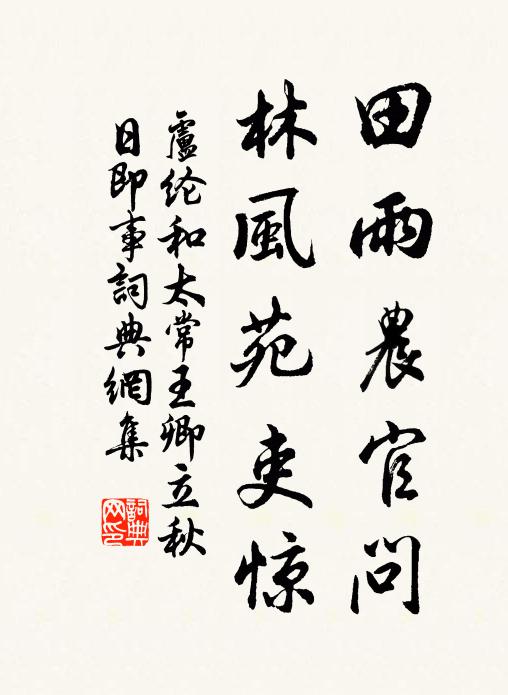 田雨農官問
林風苑吏惊
盧纶和太常王卿立秋
日即事詞典網集
詞典网印